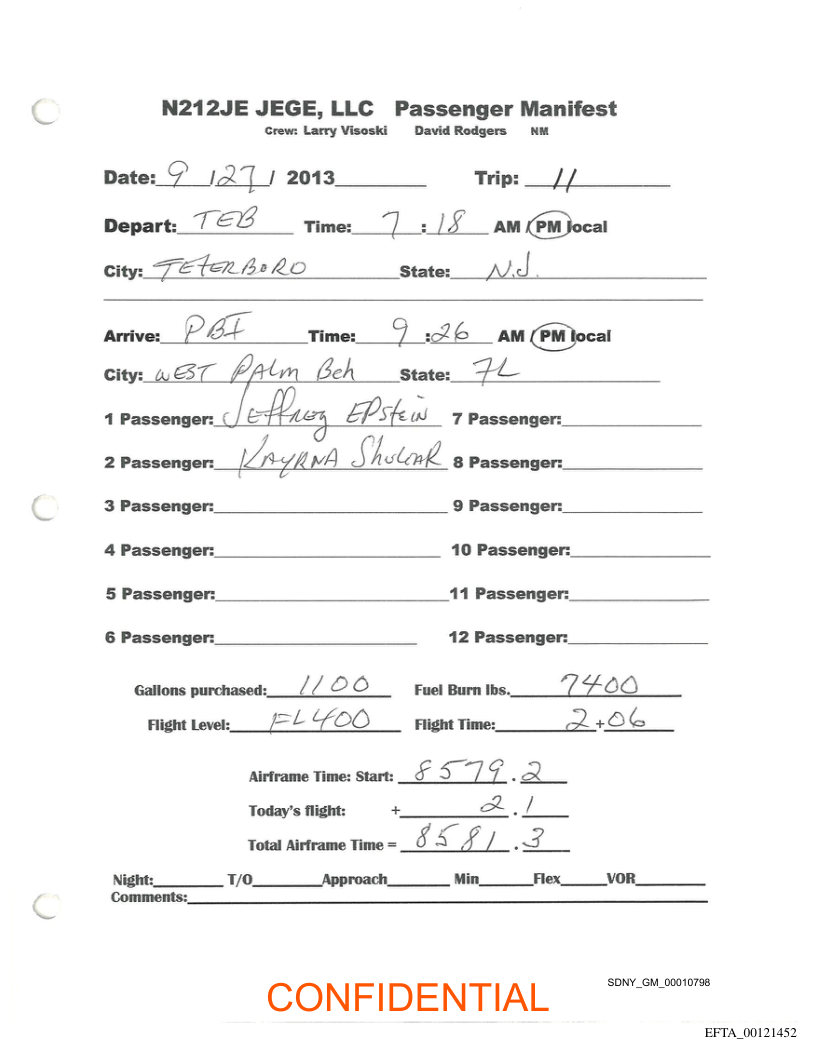 N212JE JEGE, LLC Passenger Manifest
Crew: Larry Visoski David Rodgers NM
Date: 9 /27/ 2013 Trip: 11
Depart: TEB Time: 7 : 18 AM / PM local
City: TETERBORO State: N.J.
Arrive: PBI Time: 9 :26 AM / PM local
City: WEST PALM Bch State: FL
1 Passenger: JEffREy EPstein 7 Passenger:
2 Passenger: KAYRNA ShuliAR 8 Passenger:
3 Passenger: 9 Passenger:
4 Passenger: 10 Passenger:
5 Passenger: 11 Passenger:
6 Passenger: 12 Passenger:
Gallons purchased: 1100 Fuel Burn lbs. 7400
Flight Level: FL400 Flight Time: 2+06
Airframe Time: Start: 8579.2
Today's flight: + 2.1
Total Airframe Time = 8581.3
Night: T/O Approach Min Flex VOR
Comments:
SDNY_GM_00010798
CONFIDENTIAL
EFTA_00121452